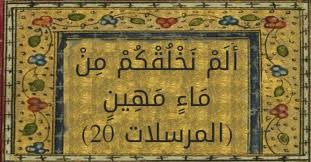 أَلَمْ نَخْلُقْكُمْ مِنْ
مَاءٍ مَهِينٍ
(المرسلات 20)